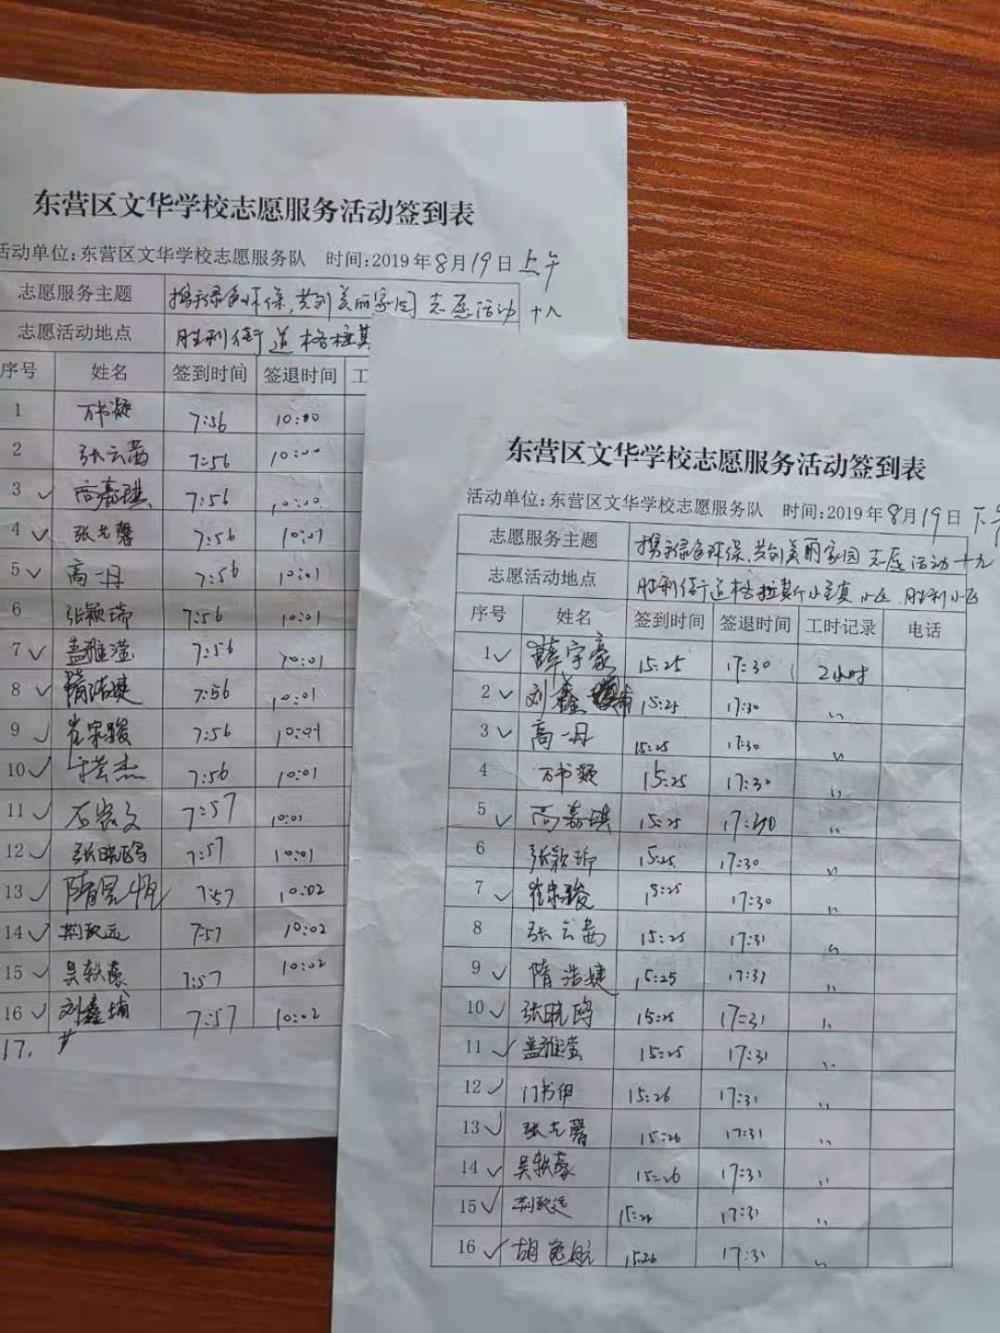 东营区文华学校志愿服务活动签到表
活动单位:东营区文华学校志愿服务队 时间:2019年8月19日上午
志愿服务主题 携手绿色环保,共创美丽家园 志愿活动 十九
志愿活动地点 胜利街道格拉斯
序号 姓名 签到时间 签退时间 工
1 万书凝 7:56 10:00
2 张云茜 7:56 10:00
3 ✓ 高嘉琪 7:56 10:00
4 ✓ 张志馨 7:56 10:01
5 ✓ 高一丹 7:56 10:01
6 张颖瑞 7:56 10:01
7 ✓ 盖雅滢 7:56 10:01
8 ✓ 隋浩婕 7:56 10:01
9 ✓ 崔宗骏 7:56 10:01
10 ✓ 7:56 10:01
11 ✓ 石 文 7:57 10:01
12 ✓ 张晓鸥 7:57 10:01
13 ✓ 隋 帆 7:57 10:02
14 ✓ 荆致远 7:57 10:02
15 ✓ 吴轶豪 7:57 10:02
16 ✓ 刘鑫埔 7:57 10:02
17.
东营区文华学校志愿服务活动签到表
活动单位:东营区文华学校志愿服务队 时间:2019年8月19日下午
志愿服务主题 携手绿色环保,共创美丽家园 志愿活动 十九
志愿活动地点 胜利街道格拉斯小 小区.胜利小区
序号 姓名 签到时间 签退时间 工时记录 电话
1 ✓ 薛宇豪 15:25 17:30 2小时
2 ✓ 刘鑫埔 15:25 17:30 〃
3 ✓ 高一丹 15:25 17:30 〃
4 万书凝 15:25 17:30 〃
5 ✓ 高嘉琪 15:25 17:30 〃
6 张颖瑞 15:25 17:30 〃
7 ✓ 崔宗骏 15:25 17:30 〃
8 张云茜 15:25 17:31 〃
9 ✓ 隋浩婕 15:25 17:31 〃
10 ✓ 张晓鸥 15:25 17:31 〃
11 ✓ 盖雅滢 15:25 17:31 〃
12 ✓ 门书伊 15:26 17:31 〃
13 ✓ 张志馨 15:26 17:31 〃
14 ✓ 吴轶豪 15:26 17:31 〃
15 ✓ 荆致远 15:26 17:31 〃
16 ✓ 胡 航 15:26 17:31 〃